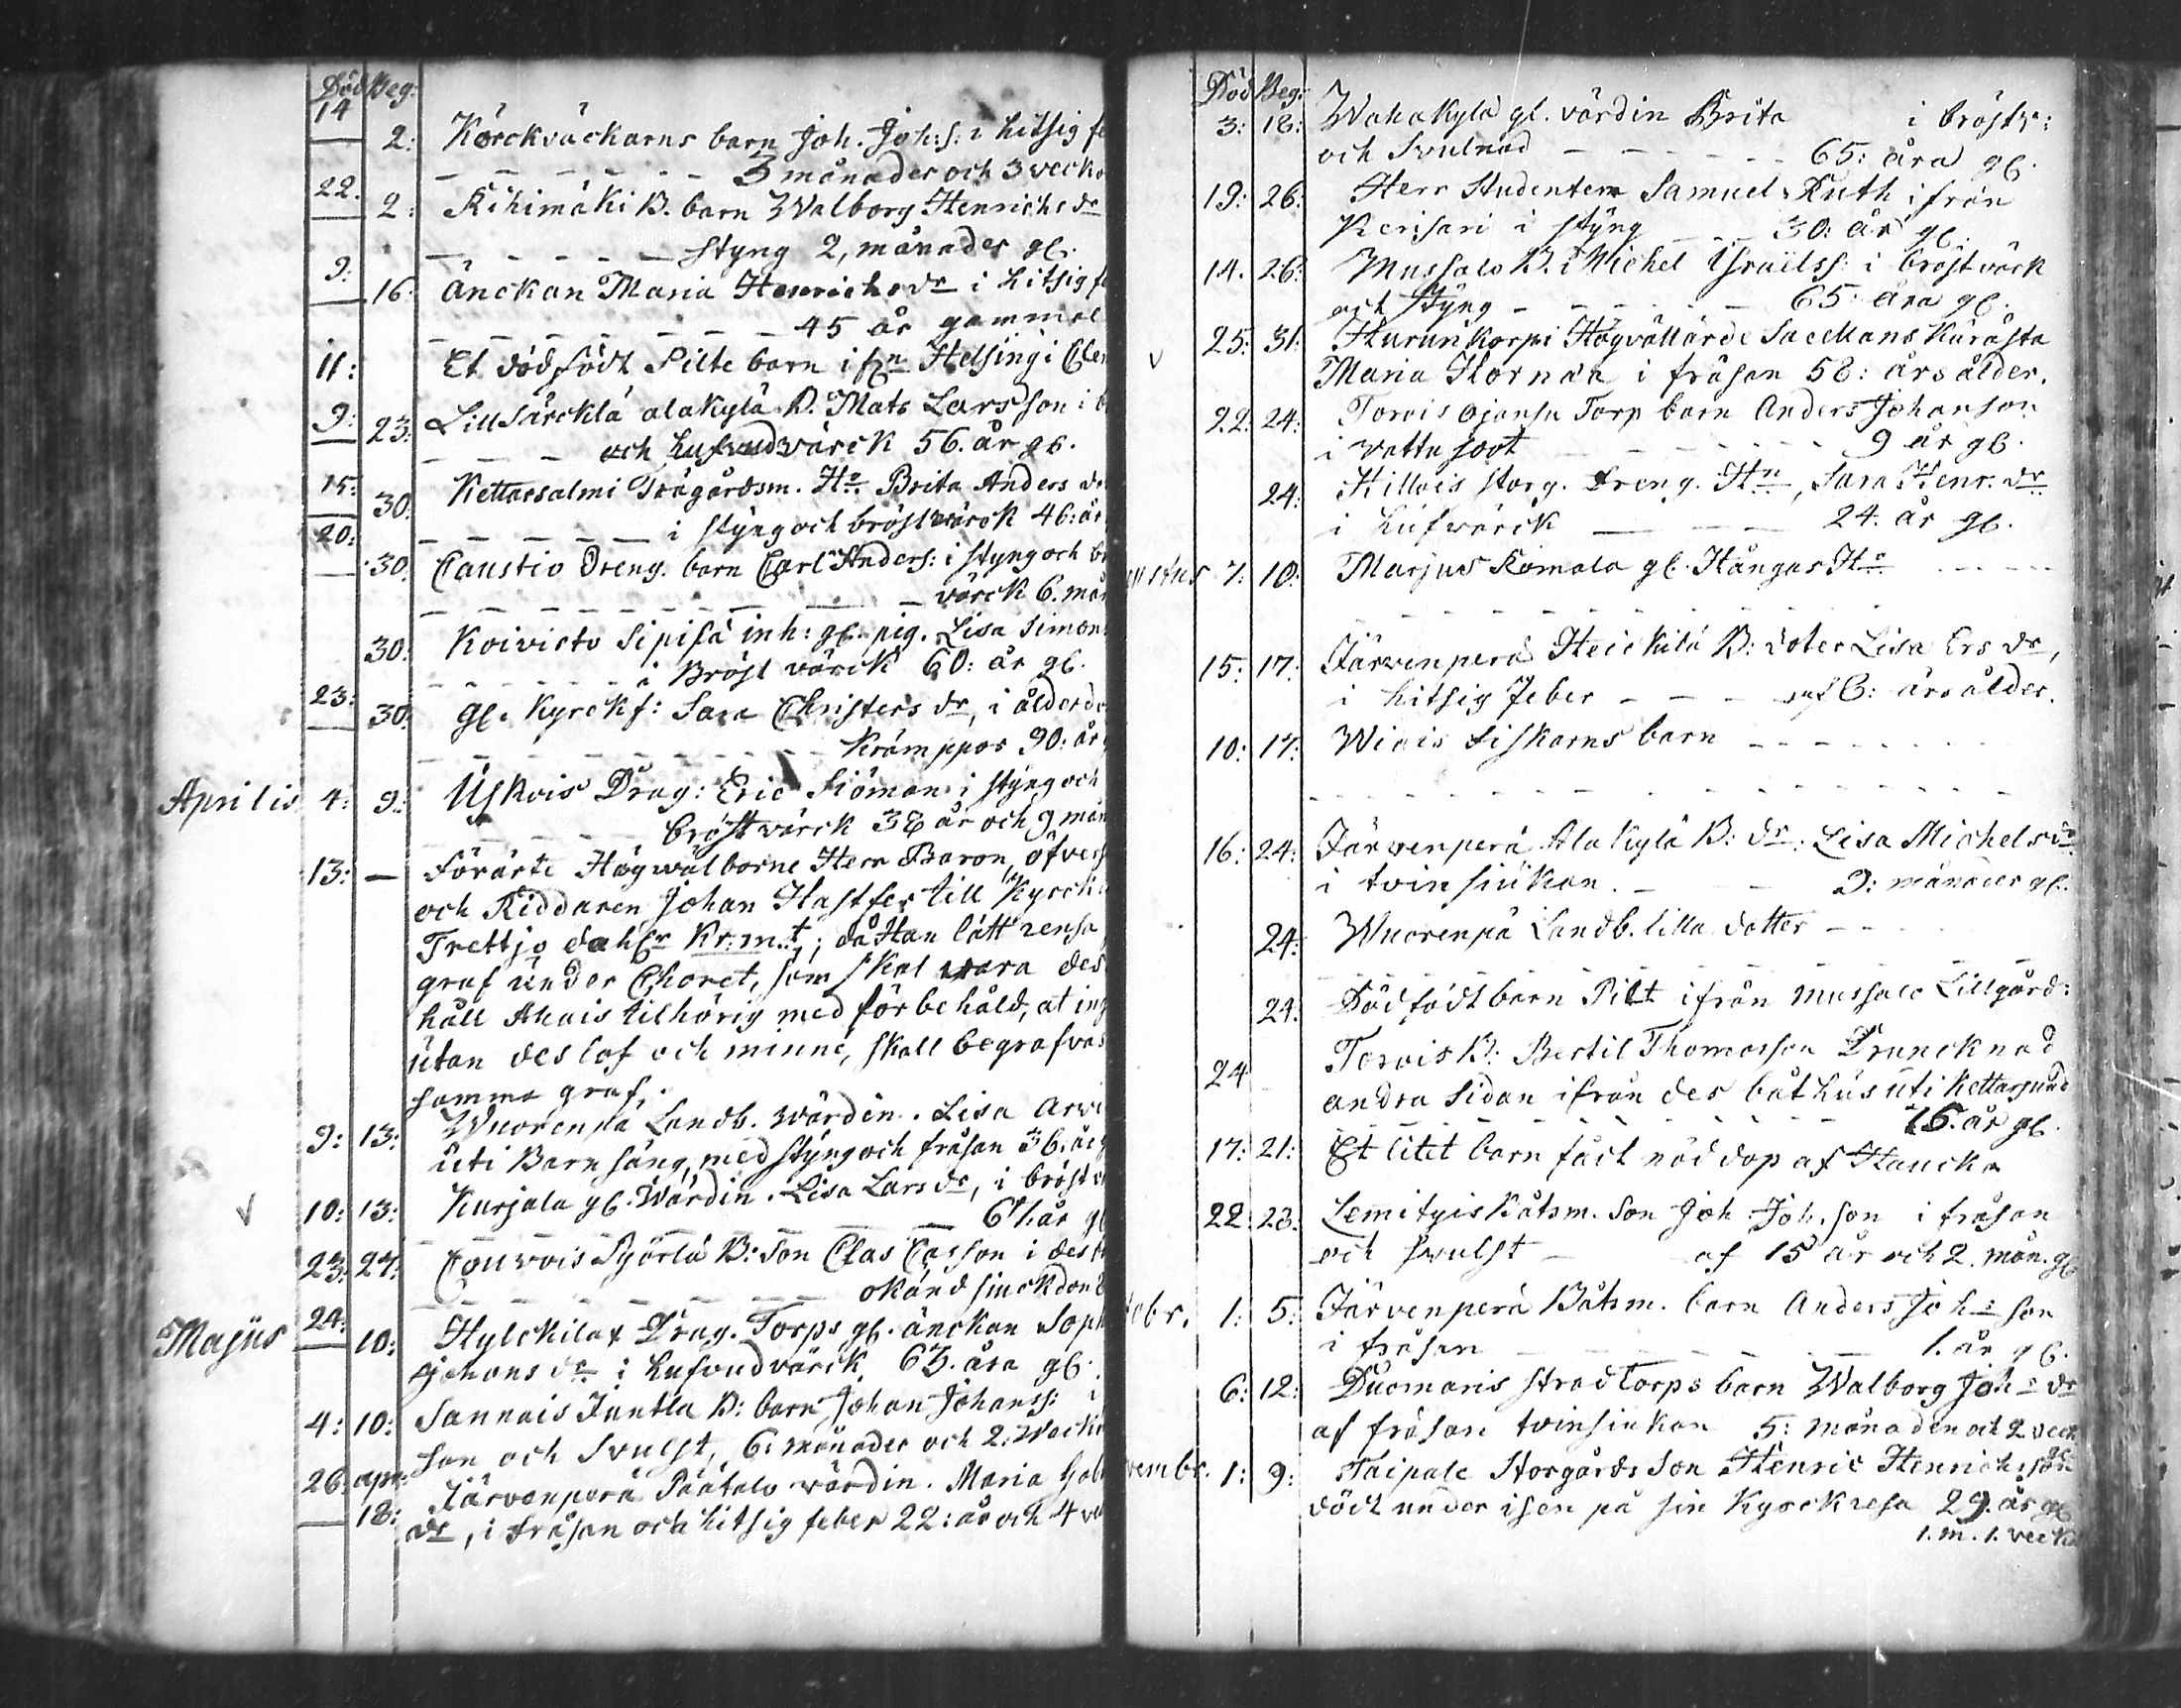 Död Beg:
14
2: Körckväckarns barn Joh. Joh:s: i hitsig fe
3 månader och 3 vecko
22. 2: Kihimäki B. barn Walborg Henrichs dr
styng 2, månader gl.
9: 16: Änckan Maria Henrichs dr i hitsig fe
45 år gammal
11: Et dödfödt Pilte barn ifrn Helsingi
9: 23: Lill Särckilä alakylä B. Mats Larsson i b
och hufvudvärck 56. år gl.
15: 30. Kettarsalmi Trägårdsm. Ho Brita Anders dr
20: i styng och bröstwärck 46: år
30. Caustio Dreng. barn Carl Anders: i styng och br
värck 6. mån
30: Koivisto Sipisä inh: gl. pig. Lisa Simon
i Bröst värck 60: år gl.
23: 30: gl. Kyrckf: Sara Christers dr, i ålderdo
Krämppor 90: år g
Aprilis 4: 9: Uskois Drag: Eric Siöman i styng och
bröstvärck 38 år och 9 mån
13: — Förärte Högwälborne Herr Baron, öfvers
och Riddaren Johan Hastfer till Kyrck
Trettjo dahlr Kr:m:t; då Han lått rensa
graf under Choret, som skal wara des
håll Ahais tilhörig med förbehåld, at ing
utan des lof och minne, skall begrafvas
samma graf.
9: 13: Wuorenpä Landb. wärdin. Lisa Arvi
uti Barnsäng, med styng och fråsan 36. år g
10: 13: Kurjala gl. Wärdin. Lisa Lars dr, i bröst v
67. år gl
23: 27: Couvois Pyörlä B: Son Clas Casson i des
okänd siuckdom
Majus 24: 10: Hylckilax Drag. Torps gl. änckan Soph
Johans dr i hufvudvärck, 63. åra gl.
4: 10: Sannais Juntla B: barn Johan Johanss: i
san och Svulst, 6: månader och 2: Wecko
26: apr: 18: Järvenperä Päätalo värdin. Maria Gab
dr, i fråsan och hitsig feber 22: år och 4 ve
Död Beg:
3: 18: Wahakylä gl. värdin Brita i bröstv:
och Svulnad 65: åra gl.
19: 26: Herr Studenten Samuel Ruth ifrån
Kerisari i styng 30: år gl.
14. 26: Mussalo B. Michel Israelss: i bröstvärck
och styng 65: åra gl.
v 25: 31: Hurunkorpi Högvällärde Sacellans Kärästa
Maria Hornæa i fråsan 58: års ålder.
22: 24: Torvis Ojansu Torp barn Anders Johanson
i vattusoot 9 år gl.
24: Killais storg. Dreng. Hn, Sara Henr. dr
i hufwärck 24. år gl.
ustus 7: 10: Marjus Komola gl. Hångas Ho
15: 17: Järvenperä Heickilä B: doter Lisa Ers dr,
i hitsig feber af 6: års ålder.
10: 17: Wiais Fiskarns barn
16: 24: Järvenperä Alakylä B: dr: Lisa Michels dr
i tvinsiukan. 9: månader gl.
24: Wuorenpä Landb. lilla dotter
24: Dödfödt barn Pilt ifrån Mussalo Lillgård:
24 Torvis B: Bertil Thomasson Druncknad
andra sidan ifrån des båthus uti Kettarsund
76. år gl.
17: 21: Et litet barn fåct nöddop af Haucka
22: 23: Lemityis Båtsm. Son Joh Joh. son i fråsan
och swulst af 15 år och 2. mån. gl
tobr. 1: 5: Järvenperä Båtsm. barn Anders Johs son
i fråsan 1. år gl.
6: 12: Duomaris stradtorps barn Walborg Johs dr
af fråsan tvinsiukan 5: månaden och 2 veck
vembr. 1: 9: Taipale Storgårds Son Henric Henrichsson
död under isen på sin Kyrckresa 29. år gl
1. m. 1. vecka